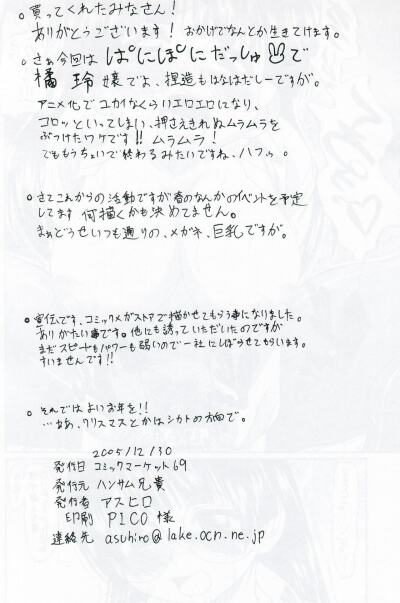 。買ってくれたみなさん!
ありがとうございます! おかげでなんとか生きてけます。
。さぁ今回は ぱにぽにだっしゅ で
橘 玲 嬢でよ、捏造もはなはだしーですが。
アニメ化でユカイなくらいエロエロになり、
コロッといってしまい、押さえきれぬムラムラを
ぶつけたワケです!! ムラムラ!
でももうちょいで終わるみたいですね、ハフゥ。
。さてこれからの活動ですが春のなんかのイベントを予定
してます 何描くかも決めてません。
まぁどうせいつも通りの、メガネ、巨乳ですが。
。宣伝です、コミックメガストアで描かせてもらう事になりました。
ありがたい事です。他にも誘っていただいたのですが
まだスピードもパワーも弱いので一社にしぼらせてもらいます。
すいませんです!!
。それではよいお年を!!
…ああ、クリスマスとかはシカトの方向で。
2005/12/30
発行日 コミックマーケット69
発行元 ハンサム兄貴
発行者 アスヒロ
印刷 PICO 様
連絡先 asuhiro@lake.ocn.ne.jp